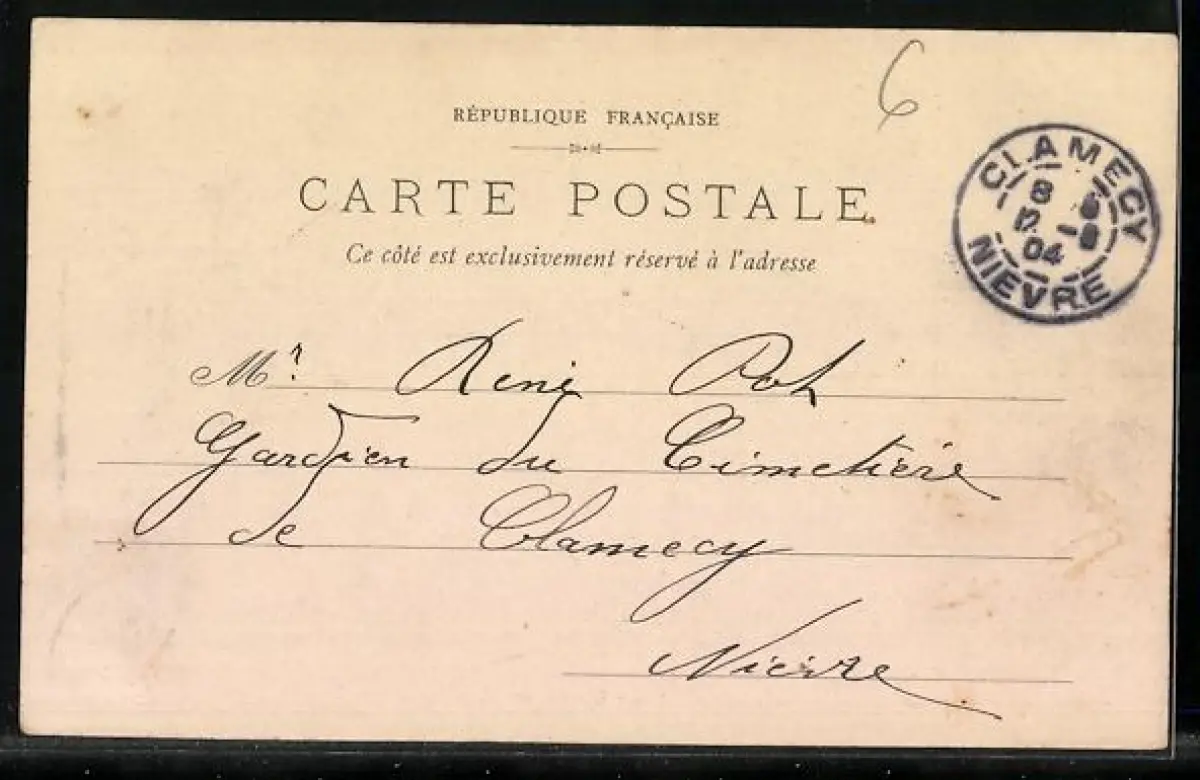 6
RÉPUBLIQUE FRANÇAISE
CARTE POSTALE
Ce côté est exclusivement réservé à l'adresse
CLAMECY
8
04
NIEVRE
Mr. René
Gardien du Cimetière
de Clamecy
Nièvre